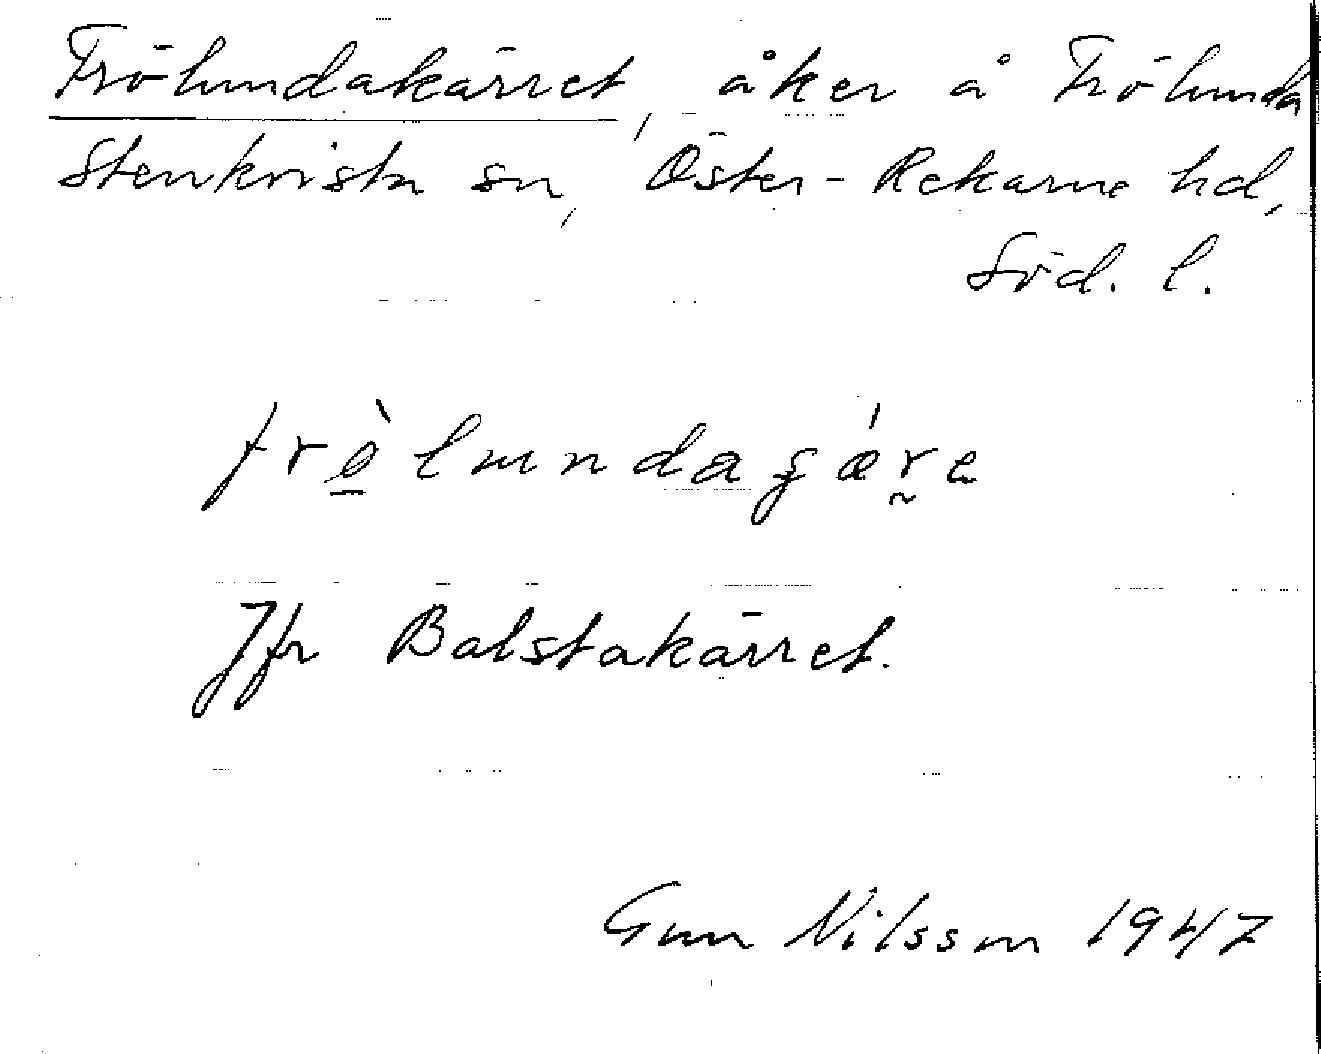 Frölundakärret, åker å Frölunda
Stenkvista sn, Öster-Rekarne hd,
Söd. l.
Jfr Balstakärret.
Gun Nilsson 1947